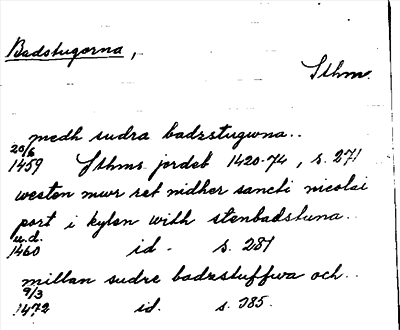 Badstugorna,
Sthm.
medh sudra badzstugwna..
20/6
1459 Sthms jordeb 1420-74, s. 271
westen mwr ret nidher sancti nicolai
port i kylen widh stenbadstuna..
u.d.
1460 id. s. 281
millan sudre badzstuffwa och..
9/3
1472 id. s. 385.